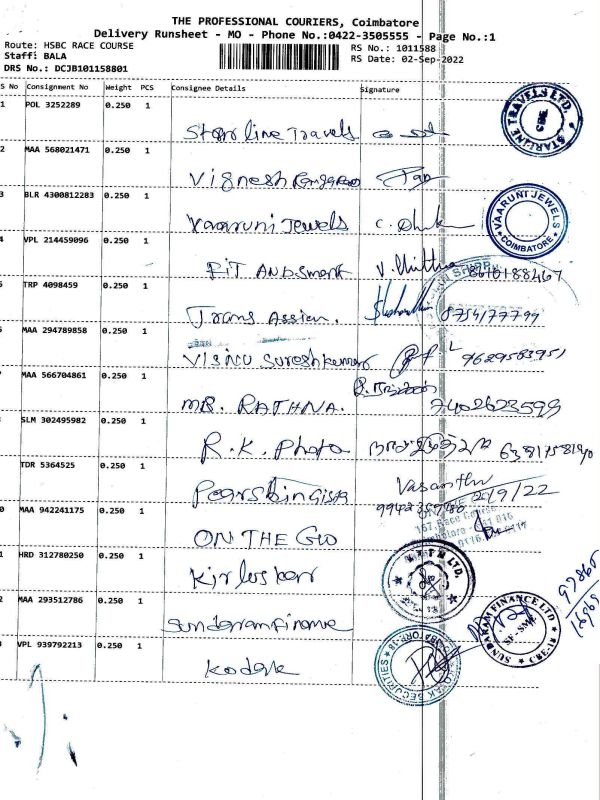 THE PROFESSIONAL COURIERS, Coimbatore
Delivery Runsheet - MO - Phone No.:0422-3505555 - Page No.:1
Route: HSBC RACE COURSE
RS No.: 1011588
Staff: BALA
RS Date: 02-Sep-2022
DRS No.: DCJB101158801
S No Consignment No Weight PCS Consignee Details Signature
1 POL 3252289 0.250 1
Starline Travels
STARLINE TRAVELS LTD.
2 MAA 568021471 0.250 1
Vignesh
3 BLR 4300812283 0.250 1
Vaaruni Jewels
VAARUNI JEWELS
COIMBATORE
4 VPL 214459096 0.250 1
FIT AND Smart
5 TRP 4098459 0.250 1
Trans Assian. 8754177799
MAA 294789858 0.250 1
Visnu Sureshkumar 9629583951
MAA 566704861 0.250 1
MR. RATHNA. 7402623599
SLM 302495982 0.250 1
R.K. Photo
TDR 5364525 0.250 1
Vasanthi
2/9/22
0 MAA 942241175 0.250 1
ON THE GO
167 Race Course
1 HRD 312780250 0.250 1
Kirloskar
2 MAA 293512786 0.250 1
Sundaram Finance
SUNDARAM FINANCE LTD
VPL 939792213 0.250 1
Kodak
KOTAK SECURITIES